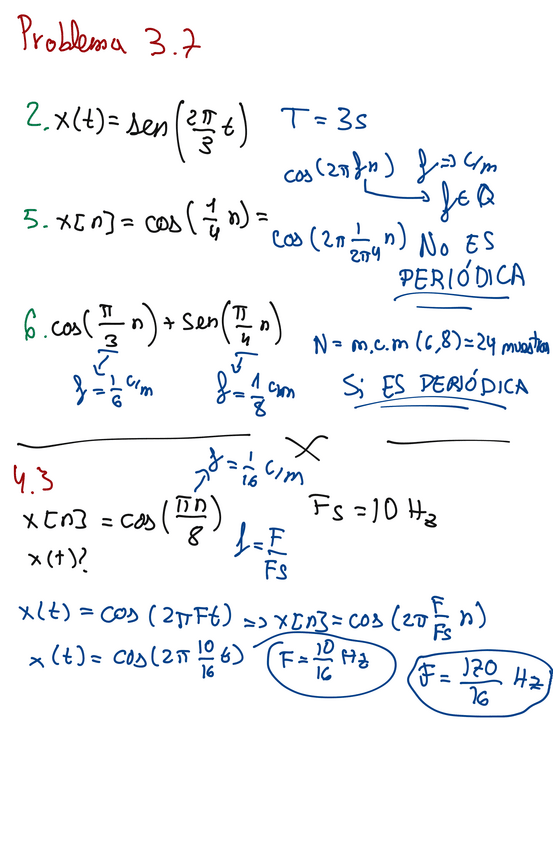 Problema 3.7
2. x(t) = sen(2π/3 t) T = 3s
cos(2π f n) f => c/m
f ∈ Q
5. x[n] = cos(1/4 n) = cos(2π 1/2π4 n) No ES
PERIÓDICA
6. cos(π/3 n) + sen(π/4 n) N = m.c.m (6,8) = 24 muestras
f = 1/6 c/m f = 1/8 c/m Si ES PERIÓDICA
4.3
f = 1/16 c/m
x[n] = cos(πn/8) Fs = 10 Hz
x(t)? f = F/Fs
x(t) = cos(2πFt) => x[n] = cos(2π F/Fs n)
x(t) = cos(2π 10/16 t) F = 10/16 Hz F = 170/16 Hz